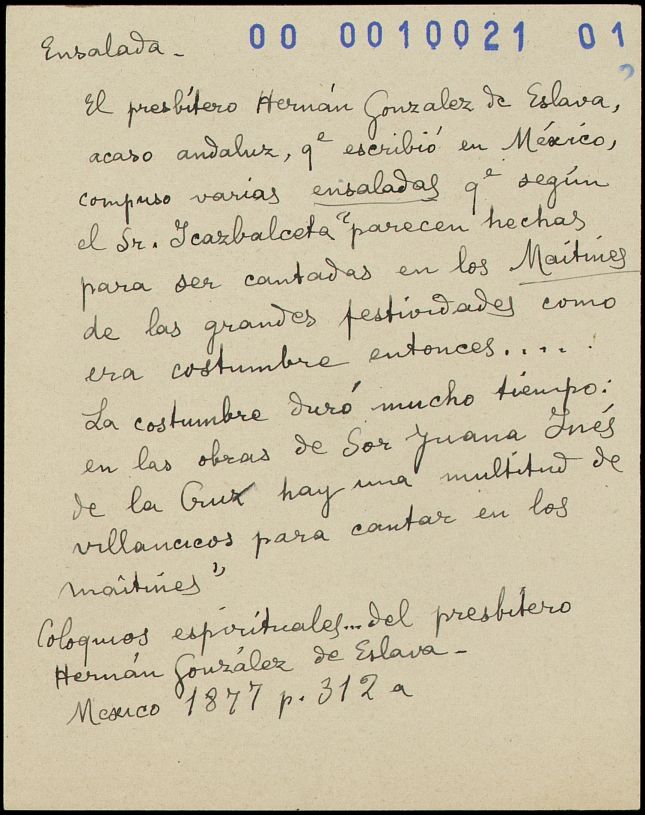 Ensalada -
00 0010021 01
El presbítero Hernán Gonzalez de Eslava,
acaso andaluz, qe escribió en México,
compuso varias ensaladas qe según
el Sr. Icazbalceta "parecen hechas
para ser cantadas en los Maitines
de las grandes festividades como
era costumbre entonces.....
La costumbre duró mucho tiempo:
en las obras de Sor Juana Inés
de la Cruz hay una multitud de
villancicos para cantar en los
maitines"
Coloquios espirituales...del presbítero
Hernán González de Eslava -
Mexico 1877 p. 312 a